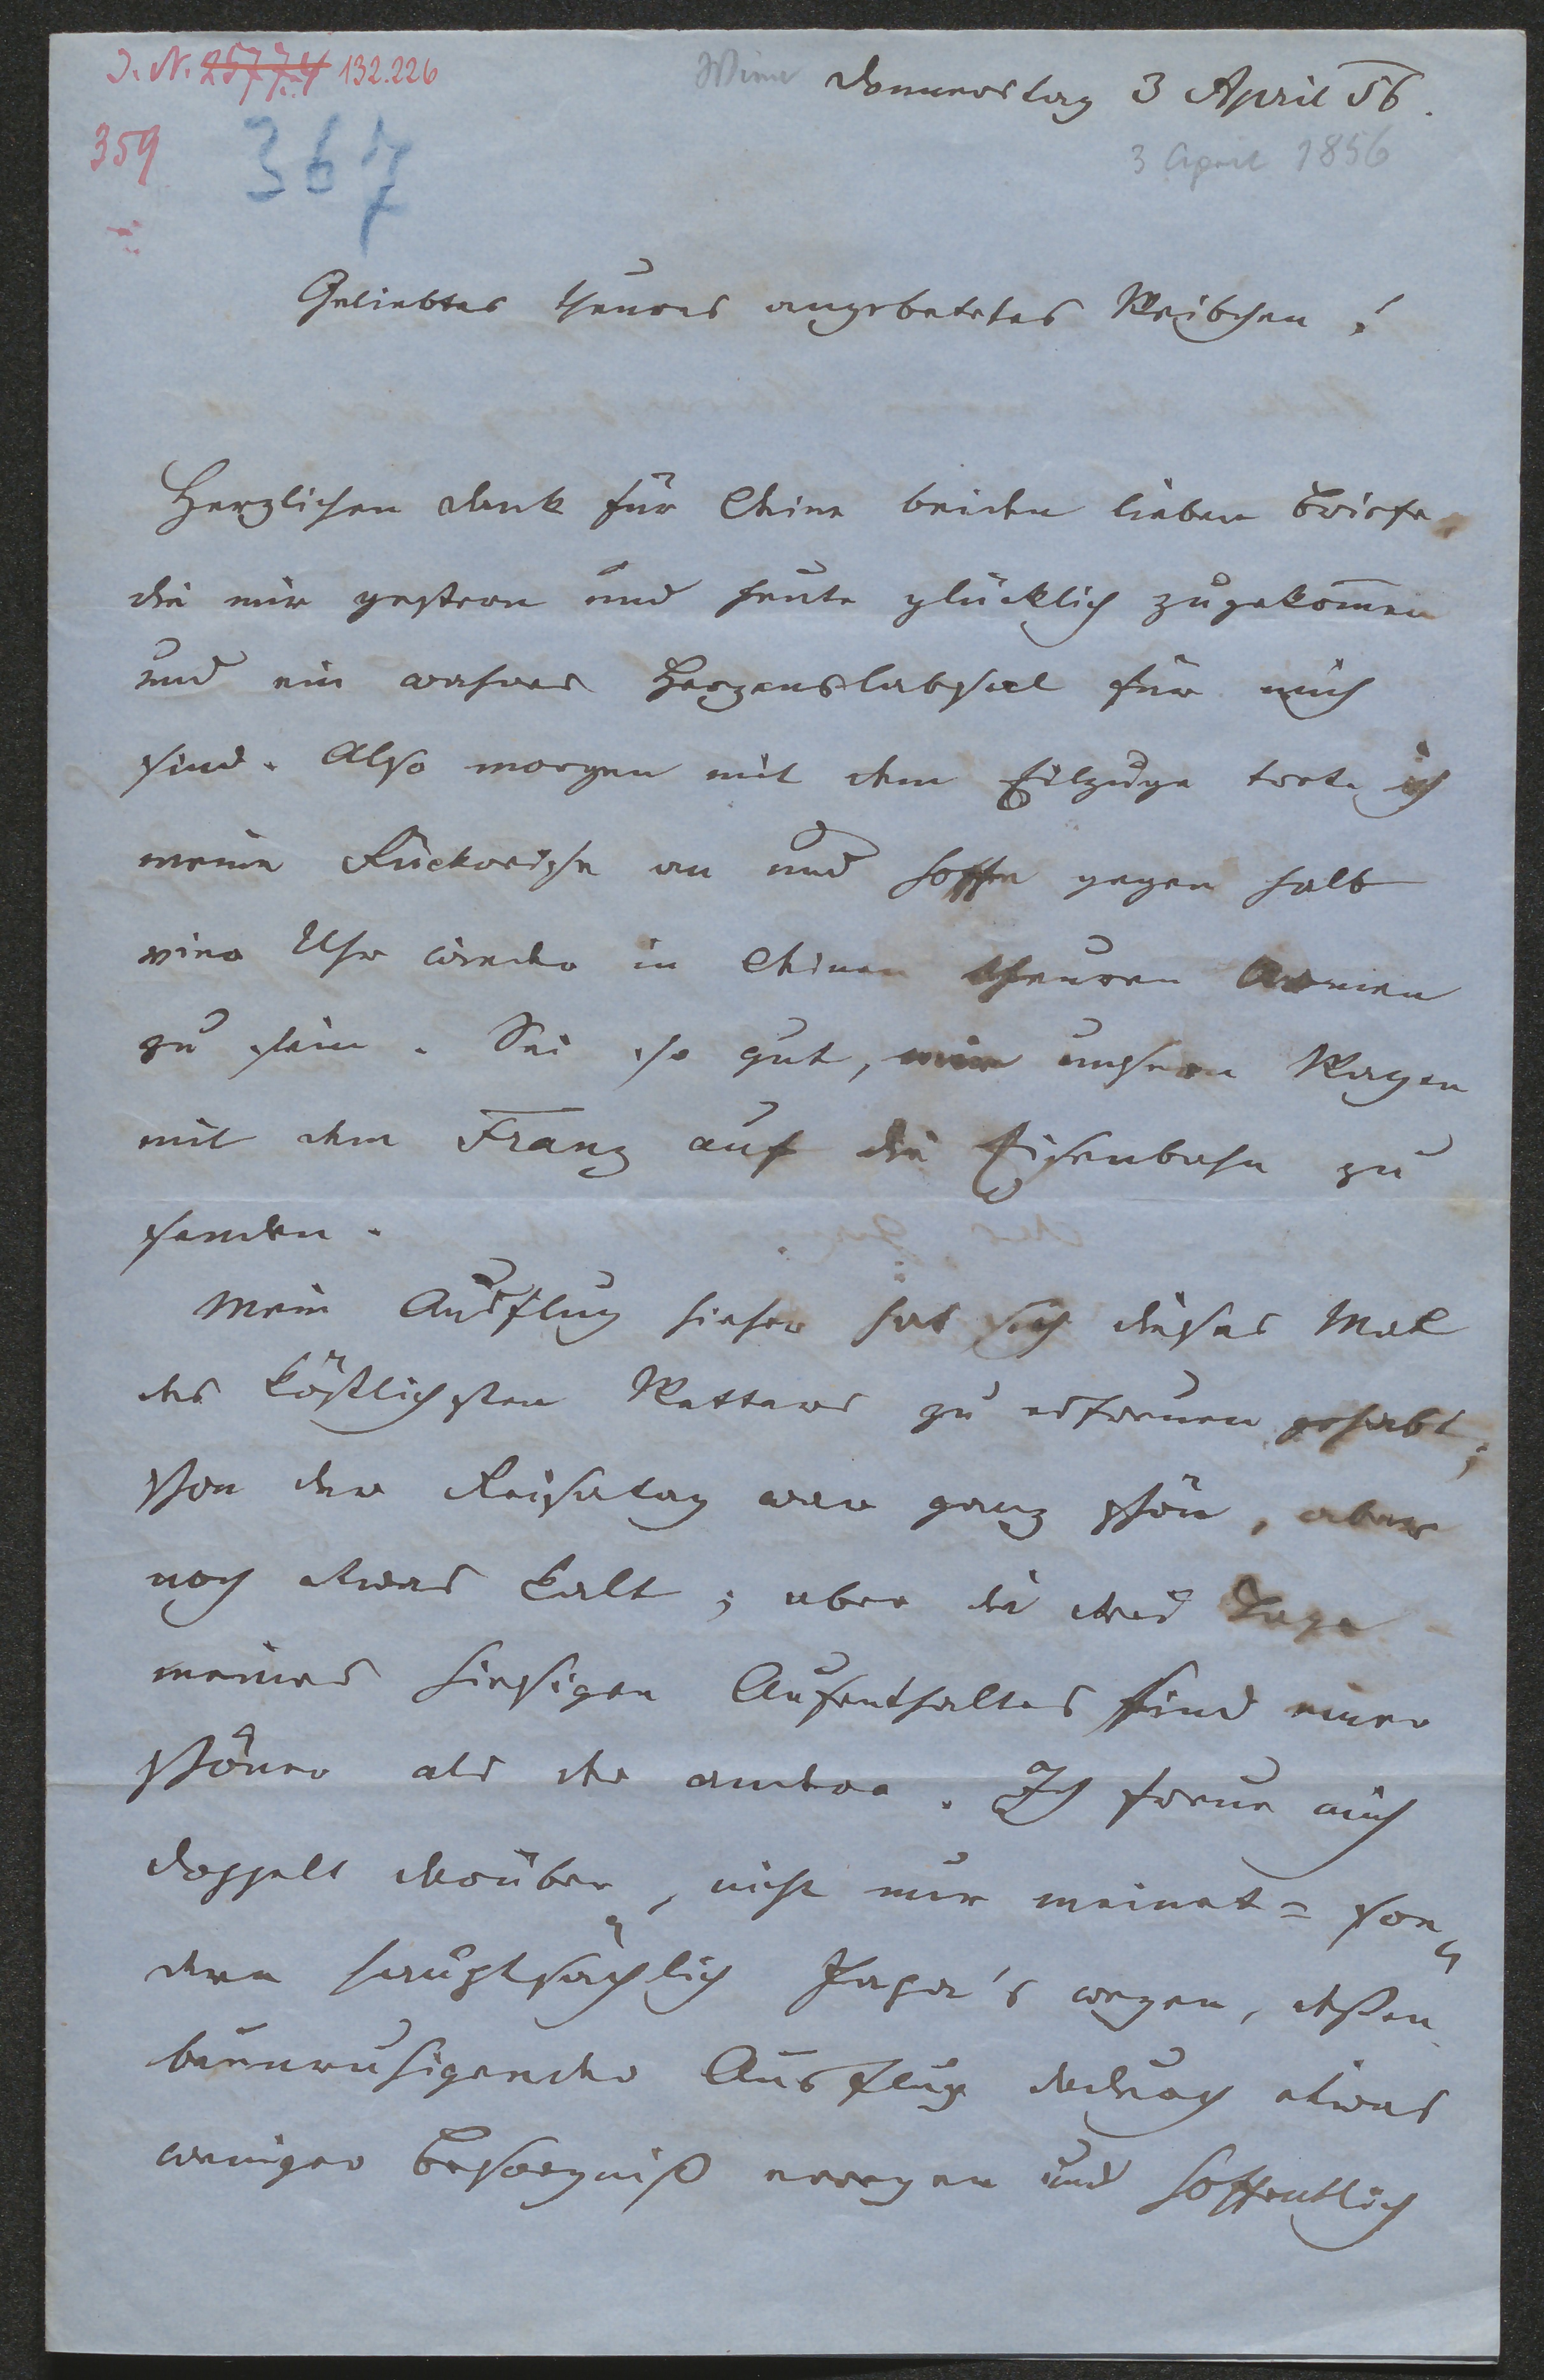 I. N. 25774 132.226
Wien Donnerstag 3 April 56.
359
367
3 April 1856
Geliebtes theures angebetetes Weibchen!
Herzlichen Dank für Deine beiden lieben Briefe,
die mir gestern und heute glücklich zugekom̅en
und ein wahres Herzenslabsal für mich
sind. Also morgen mit dem Eilzuge trete ich
meine Rückreise an und hoffe gegen halb
vier Uhr wieder in Deinen theuren Armen
zu sein. Sei so gut, mir unsern Wagen
mit dem Franz auf die Eisenbahn zu
senden.
Mein Ausflug hieher hat sich dieses Mal
des köstlichsten Wetters zu erfreuen gehabt;
schon der Reisetag war ganz schön, aber
noch etwas kalt; aber die drei Tage
meines hiesigen Aufenthaltes sind einer
schöner als der andere. Ich freue mich
doppelt darüber, nicht nur meinet= son„
dern hauptsächlich Papa's wegen, deßen
beunruhigender Ausflug dadurch etwas
weniger Besorgniß erregen und hoffentlich